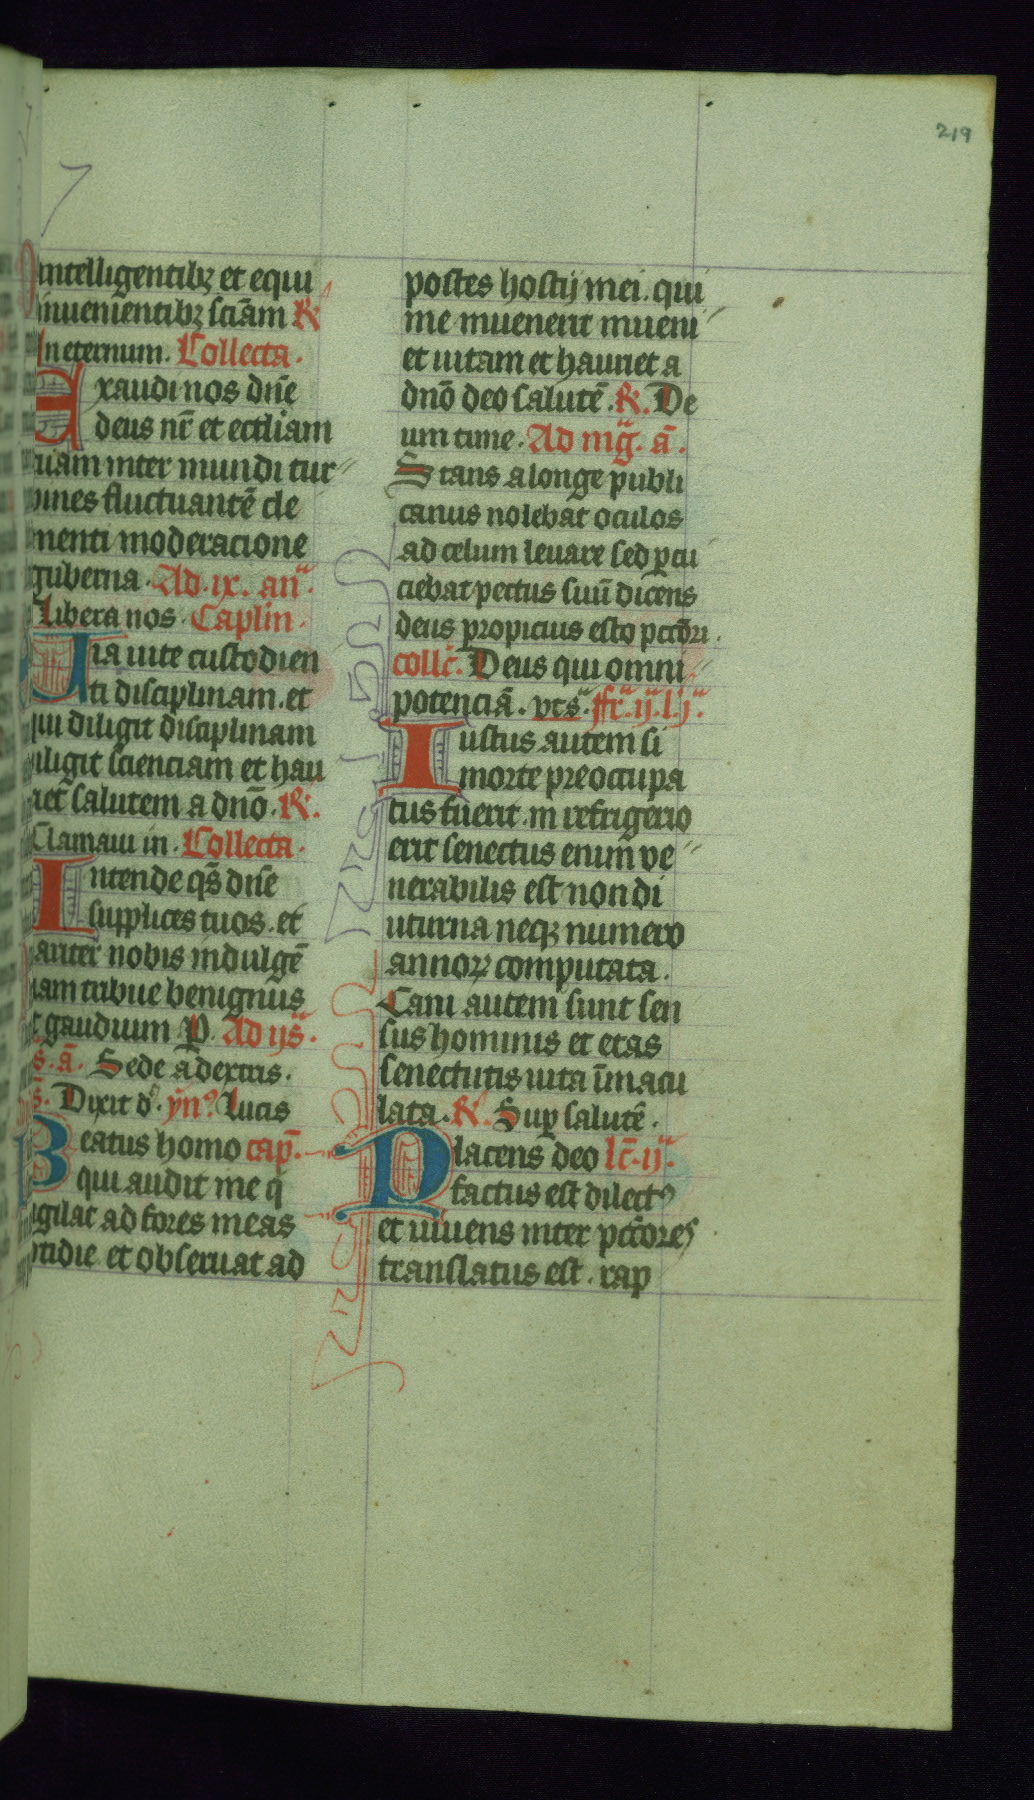 219
intelligentibꝫ et equi
inuenientibꝫ sciāam ℟
In eternum. Collecta.
Exaudi nos dn̄e
deus nr̄ et eccl̄iam
tuam inter mundi tur
bines fluctuantē cle
menti moderacione
guberna. Ad .ix. an̄.
Libera nos. Caplm̄.
Uia uite custodien
ti disciplinam. et
qui diligit disciplinam
diligit scienciam et hau
riet salutem a dnō. ℟.
Clamaui in. Collecta.
Intende qs̄ dn̄e
supplices tuos. et
nobis indulgē
ciam tribue benignus
et gaudium P. Ad ijs̄.
s. ā. Sede a dextris.
s̄. Dixit d. yn̄. Lucis
Beatus homo cap̄.
qui audit me q̄
uigilat ad fores meas
cotidie et obseruat ad
postes hostij mei. qui
me inuenerit inueni
et uitam et hauriet a
dnō deo salutē. ℟. De
um time. Ad mḡ. ā.
Stans a longe publi
canus nolebat oculos
ad celum leuare sed ꝑcu
ciebat pectus suū dicens
deus propicius esto pctōri.
collc̄. Deus qui omni
potenciā. vts̄. fr̄.ij.l.j.
Iustus autem si
morte preoccupa
tus fuerit. in refrigerio
erit senectus enim ve
nerabilis est non di
uturna neqꝫ numero
annoꝝ computata.
Cani autem sunt sen
sus hominis et etas
senectutis uita īmacu
lata. ℟. Suꝑ salutē.
Placens deo lc̄.ij.
factus est dilectꝯ
et uiuens inter pctōres
translatus est. rap